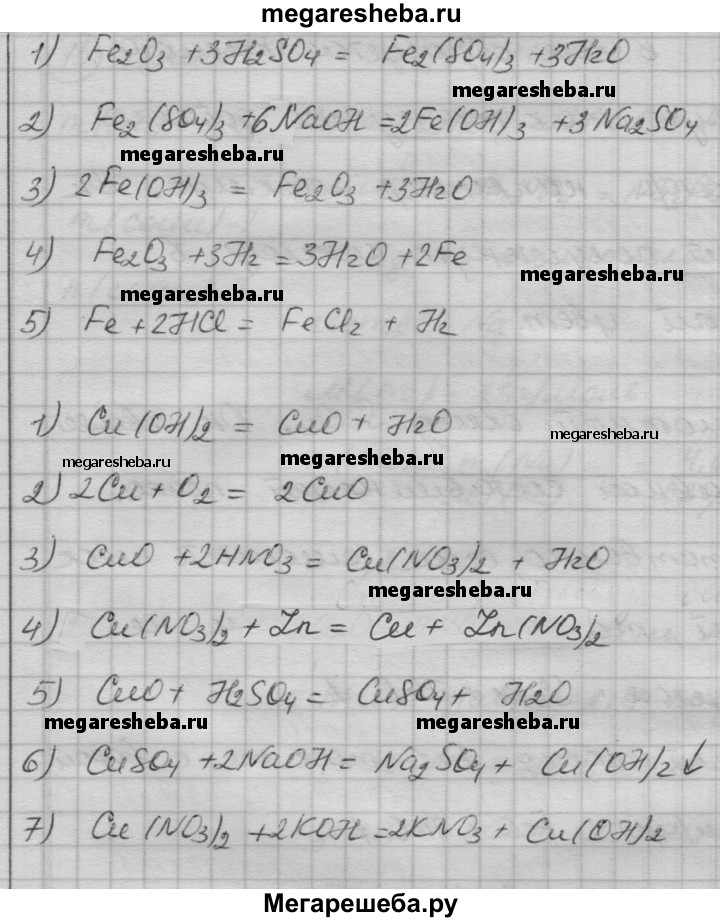 megaresheba.ru
1) Fe2O3 +3H2SO4 = Fe2(SO4)3 +3H2O
megaresheba.ru
2) Fe2(SO4)3 +6NaOH =2Fe(OH)3 +3Na2SO4
megaresheba.ru
3) 2Fe(OH)3 = Fe2O3 +3H2O
4) Fe2O3 +3H2 =3H2O +2Fe
megaresheba.ru
megaresheba.ru
5) Fe +2HCl = FeCl2 + H2
1) Cu(OH)2 = CuO + H2O
megaresheba.ru
megaresheba.ru
megaresheba.ru
2) 2Cu + O2 = 2CuO
3) CuO +2HNO3 = Cu(NO3)2 + H2O
megaresheba.ru
4) Cu(NO3)2 + Zn = Cu + Zn(NO3)2
5) CuO + H2SO4 = CuSO4 + H2O
megaresheba.ru
megaresheba.ru
6) CuSO4 +2NaOH = Na2SO4 + Cu(OH)2↓
7) Cu(NO3)2 +2KOH =2KNO3 + Cu(OH)2
Мегарешеба.ру